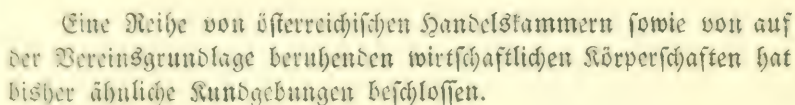 Eine Reihe von öſterreichiſchen Handelskammern ſowie von auf
der Vereinsgrundlage beruhenden wirtſchaftlichen Körperſchaften hat
bisher ähnliche Kundgebungen beſchloſſen.